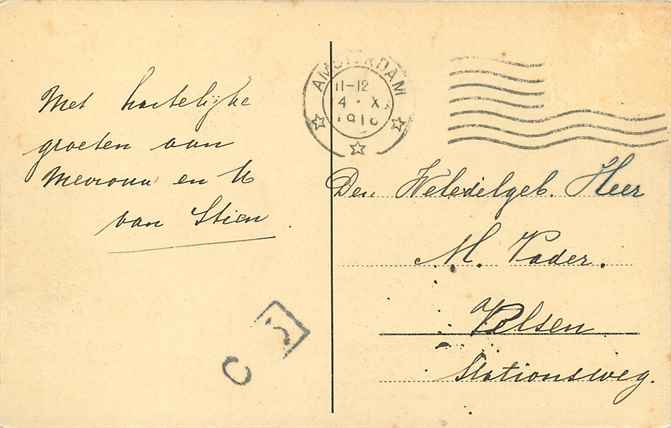 Met hartelijke
groeten aan
Mevrouw en U
van Stien
AMSTERDAM
11-12
4 X
191
Den Weledelgeb. Heer
M. Vader.
Velsen
Stationsweg.